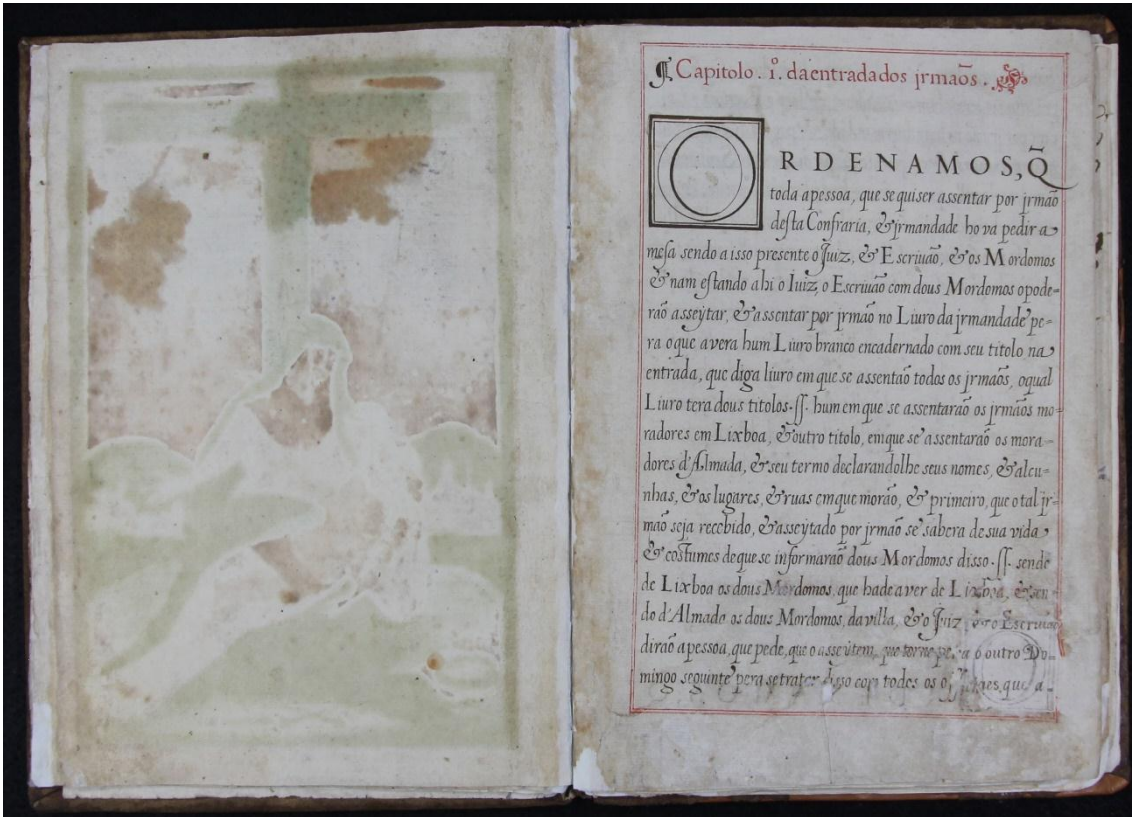 ¶ Capitolo . 1º. da entrada dos jrmaõs .
ORDENAMOS, Q̃
toda a pessoa, que se quiser assentar por jrmaõ
desta Confraria, & jrmandade ho va pedir a
mesa sendo a isso presente o Juiz, & Escriuaõ, & os Mordomos
& nam estando ahi o Iuiz, o Escriuaõ com dous Mordomos o pode-
raõ asseẏtar, & assentar por jrmaõ no Liuro da jrmandade pe-
ra o que avera hum Liuro branco encadernado com seu titolo na
entrada, que diga liuro em que se assentaõ todos os jrmaõs, o qual
Liuro tera dous titolos . ſſ . hum em que se assentaraõ os jrmaõs mo-
radores em Lixboa, & outro titolo, em que se assentaraõ os mora-
dores d'Almada, & seu termo declarandolhe seus nomes, & alcu-
nhas, & os lugares, & ruas em que moraõ, & primeiro, que o tal jr-
maõ seja recebido, & asseẏtado por jrmaõ se sabera de sua vida
& costumes de que se informaraõ dous Mordomos disso . ſſ . sendo
de Lixboa os dous Mordomos, que hade aver de Lixboa, & sen-
do d'Almada os dous Mordomos, da villa, & o Juiz, & o Escriuaõ
diraõ a pessoa, que pede, que o asseẏtem, que torne pera o outro Do-
mingo seguinte pera se tratar disso com todos os que a-